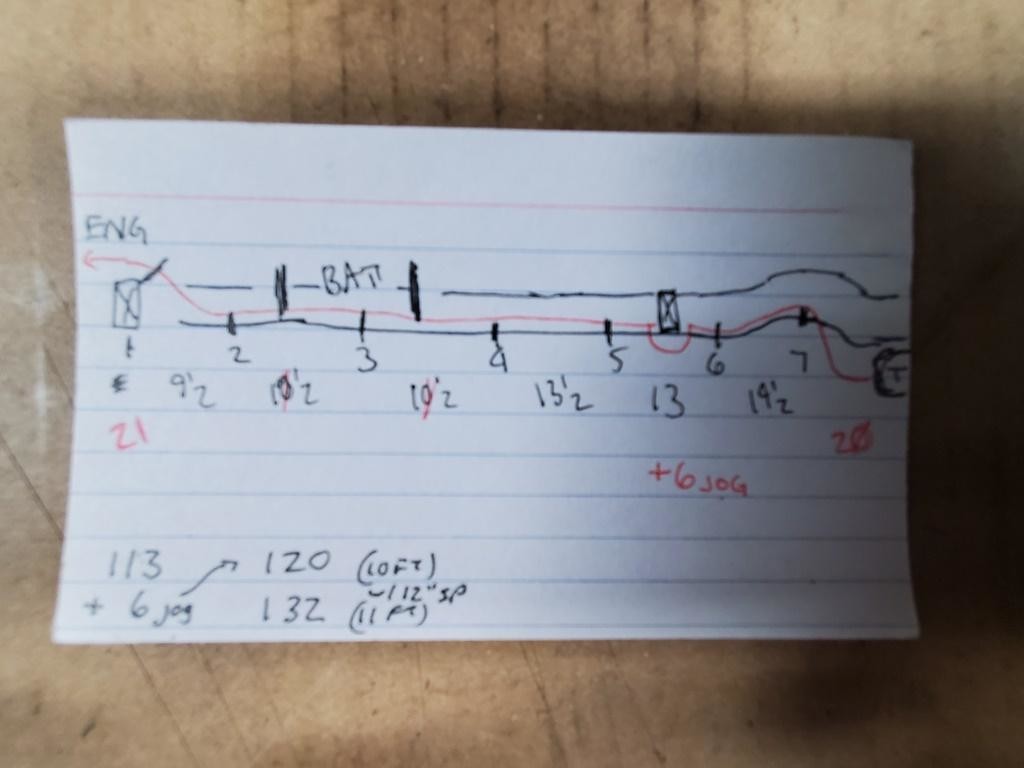 ENG
BAT
1 2 3 4 5 6 7 T
9 1/2 10 1/2 10 1/2 13 1/2 13 14 1/2
21 20
+6 JOG
113 120 (10FT)
+ 6 jog 132 (11 FT)